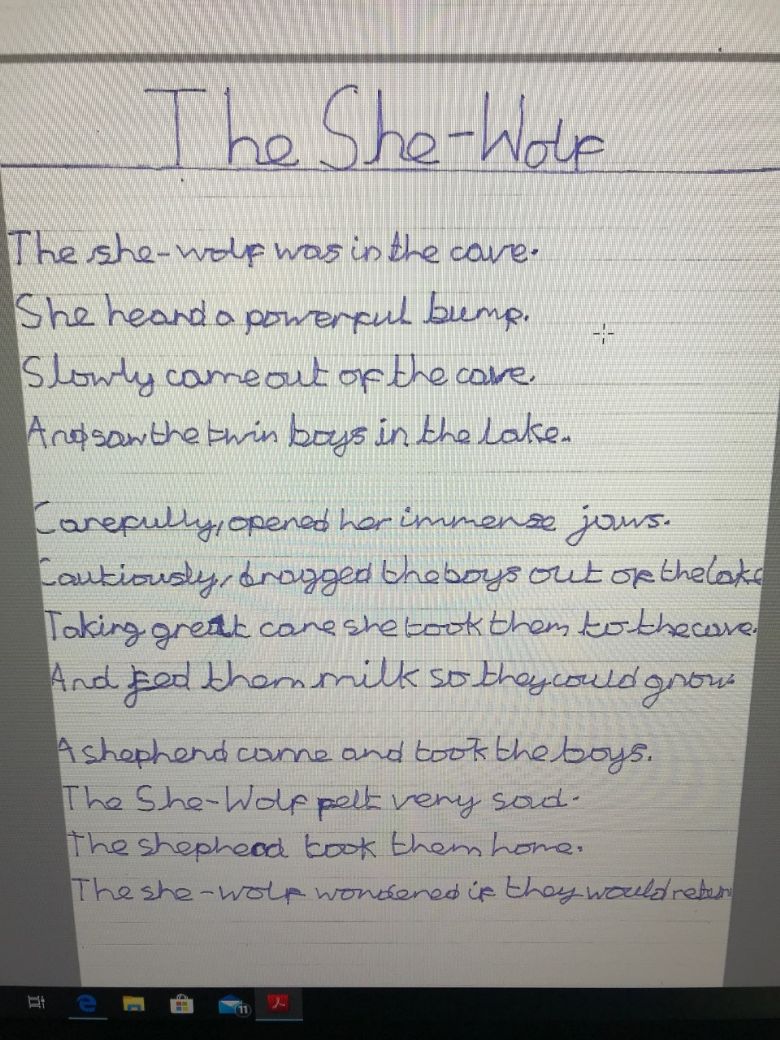 The She-Wolf
The she-wolf was in the cave.
She heard a powerful bump.
Slowly came out of the cave.
And saw the twin boys in the lake.
Carefully, opened her immense jaws.
Cautiously, dragged the boys out of the lake
Taking great care she took them to the cave.
And fed them milk so they could grow.
A shepherd came and took the boys.
The She-Wolf felt very sad.
The shepherd took them home.
The she-wolf wondered if they would return
11